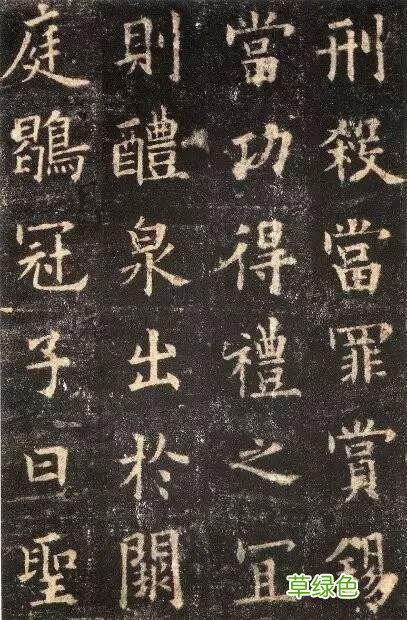 刑殺當罪賞錫
當功得禮之宜
則醴泉出於闕
庭鶡冠子曰聖
草绿色